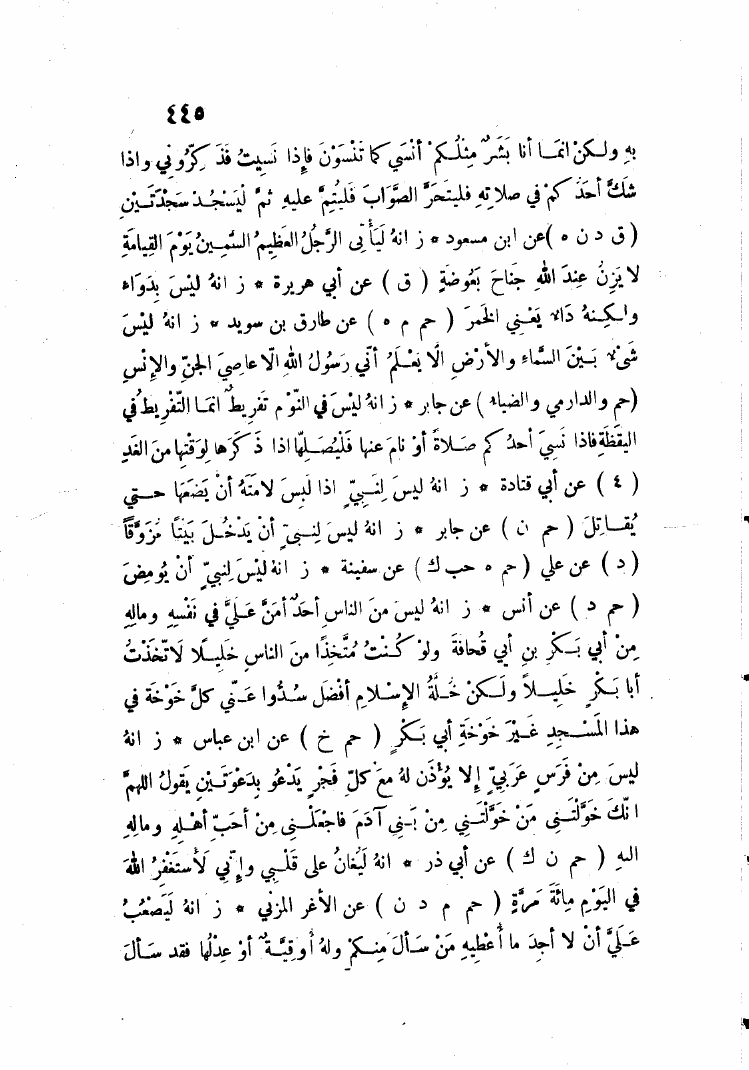 ٤٤٥
بِهِ ولـكنْ انمـا أنا بَشَرٌ مِثْلُـكمْ أَنْسَي كما تَنْسَوْنَ فإِذا نَسِيتُ فَذَ كِّرُوني واذا
شَكَّ أحَدُ كمْ في صلاتِهِ فليَتحَرَّ الصَّوَابَ فَليُتِمَّ عليهِ ثمَّ لْيَسْجُدْ سَجْدَتَـيْنِ
( ق د ن ه )عن ابن مسعود * ز انهُ لَيَأْتِى الرَّجُلُ العَظِيمُ السَّمِـينُ يَوْمَ القِيامَةِ
لا يَزِنُ عِنْدَ اللهِ جَناحَ بَعُوضَةٍ ( ق ) عن أبي هريرة * ز انهُ لَيْسَ بِدَوَاءٍ
ولـكِنهُ دَاءٌ يَعْنِي الخمرَ ( حم م ه ) عن طارق بن سويد * ز انهُ لَيْسَ
شَىْءٌ بَـيْنَ السَّماءِ والأَرْضِ الَّا يَعْلَمُ أَنِّي رَسُولُ اللهِ الَّا عاصِيَ الجنِّ والإِنْسِ
(حم والدارمي والضياء ) عن جابر * ز انهُ ليْسَ في النَّوْمِ تَفْرِيطٌ انمَـا التَّفْرِيطُ في
اليَقظَةِ فاذا نَسِيَ أحدُ كم صـلاةً أوْ نامَ عنها فَلْيُصَـلِّها اذا ذَ كَرَها لِوَقْتِها منَ الغَدِ
( ٤ ) عن أبي قتادة * ز انهُ ليسَ لِنَبِيٍّ اذا لَبِسَ لَامَتَهُ أنْ يَضَعَها حـتي
يُقـاتِلَ ( حم ن ) عن جابر * ز انهُ ليسَ لِنبيٍّ أنْ يَدْخُـلَ بَيْتاً مُزَوَّقاً
( د ) عن علي ( حم ه حب ك ) عن سفينة * ز انهُ لَيْسَ لِنبيٍّ أنْ يُومِضَ
( حم د ) عن أنس * ز انهُ ليسَ منَ الناسِ أحَدٌ أمَنَّ عَـلَيَّ في نَفْسِهِ ومالِهِ
مِنْ أبي بَـكْرِ بنِ أبي قُحافَةَ ولوْ كُـنْتُ مُتَّخِذًا منَ الناسِ خَلِيـلًا لَاتَّخَذْتُ
أبا بَـكْرٍ خَلِيـلاً ولـكنْ خُـلَّةُ الإِسْـلامِ أفْضَلُ سُـدُّوا عَـنِّي كلَّ خَوْخَةٍ في
هذا المَسْـجِدِ غَـيْرَ خَوْخَةِ أبي بَكْرٍ ( حم خ ) عن ابن عباس * ز انهُ
ليسَ مِنْ فَرَسٍ عَرَبيٍّ إِلا يُؤْذَن لهُ معَ كلِّ فَجْرٍ يَدْعُو بِدَعْوَتَـيْنِ يَقُولُ اللهمَّ
انَّكَ خَوَّلْتَـنِى مَنْ خَوَّلْتَـنِي مِنْ بَـنِي آدَمَ فاجْعَلْـنِى مِنْ أحَبِّ أهْـلِهِ ومالِهِ
اليهِ ( حم ن ك ) عن أبي ذر * انهُ لَيُغانُ على قَلْـبِي وإِنِّي لَأَسْتَغْفِرُ اللهَ
في اليَوْمِ مِائَةَ مَرَّةٍ ( حم م د ن ) عن الأغر المزني * ز انهُ لَيَصْعُبُ
عَـلَيَّ أنْ لا أجِدَ ما أُعْطِيهِ مَنْ سَألَ مِنـكمْ ولهُ أُوقِيَّـةٌ أوْ عِدْلُها فقد سَـألَ